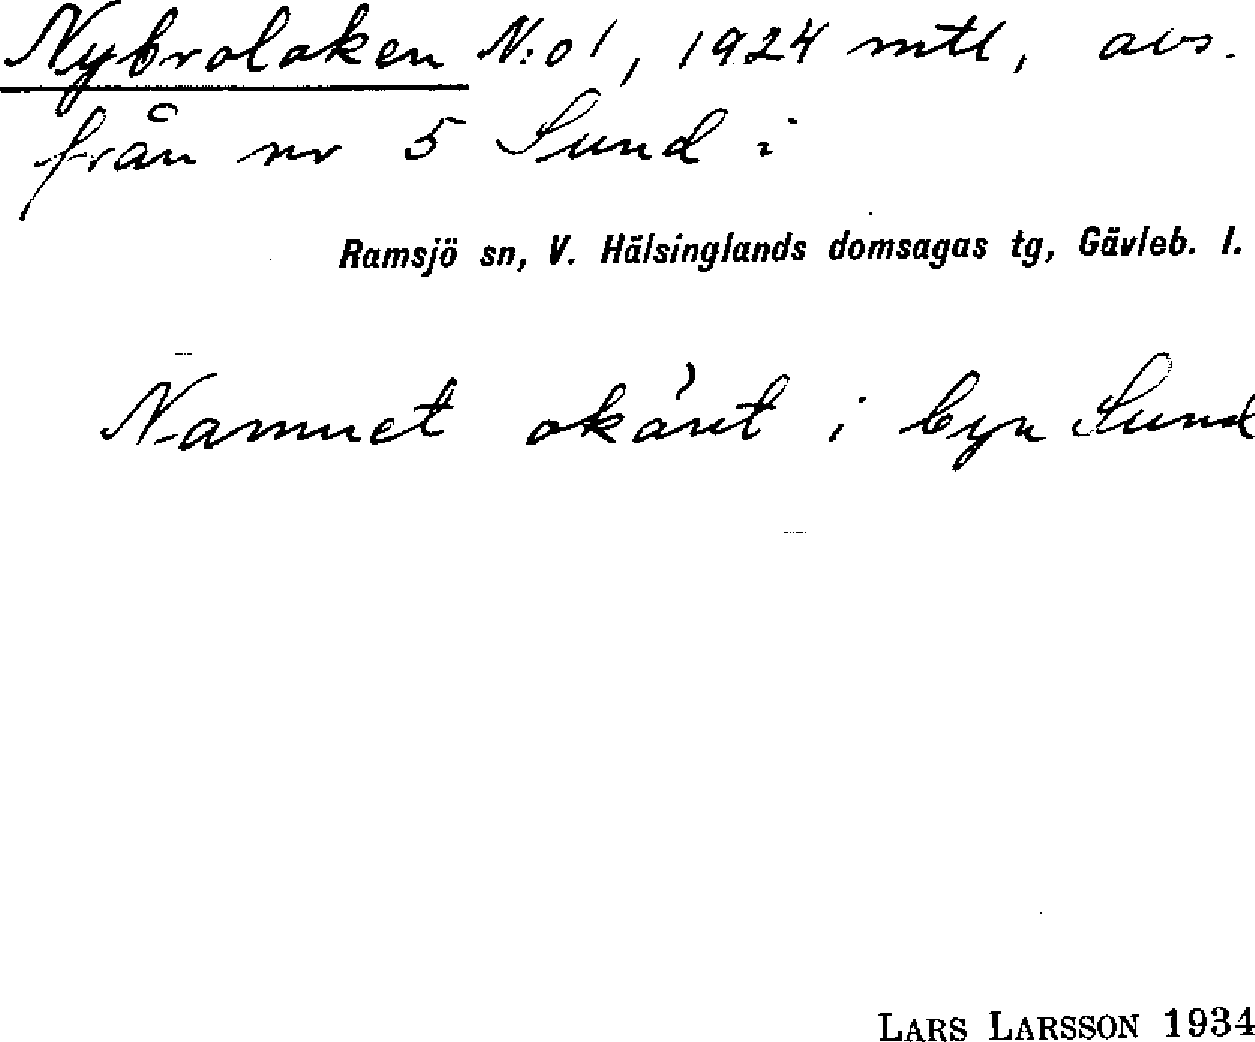 Nybroloken N:o 1, 1924 mtl, avs.
från nr 5 Sund i
Ramsjö sn, V. Hälsinglands domsagas tg, Gävleb. l.
Namnet okänt i byn Sund
LARS LARSSON 1934